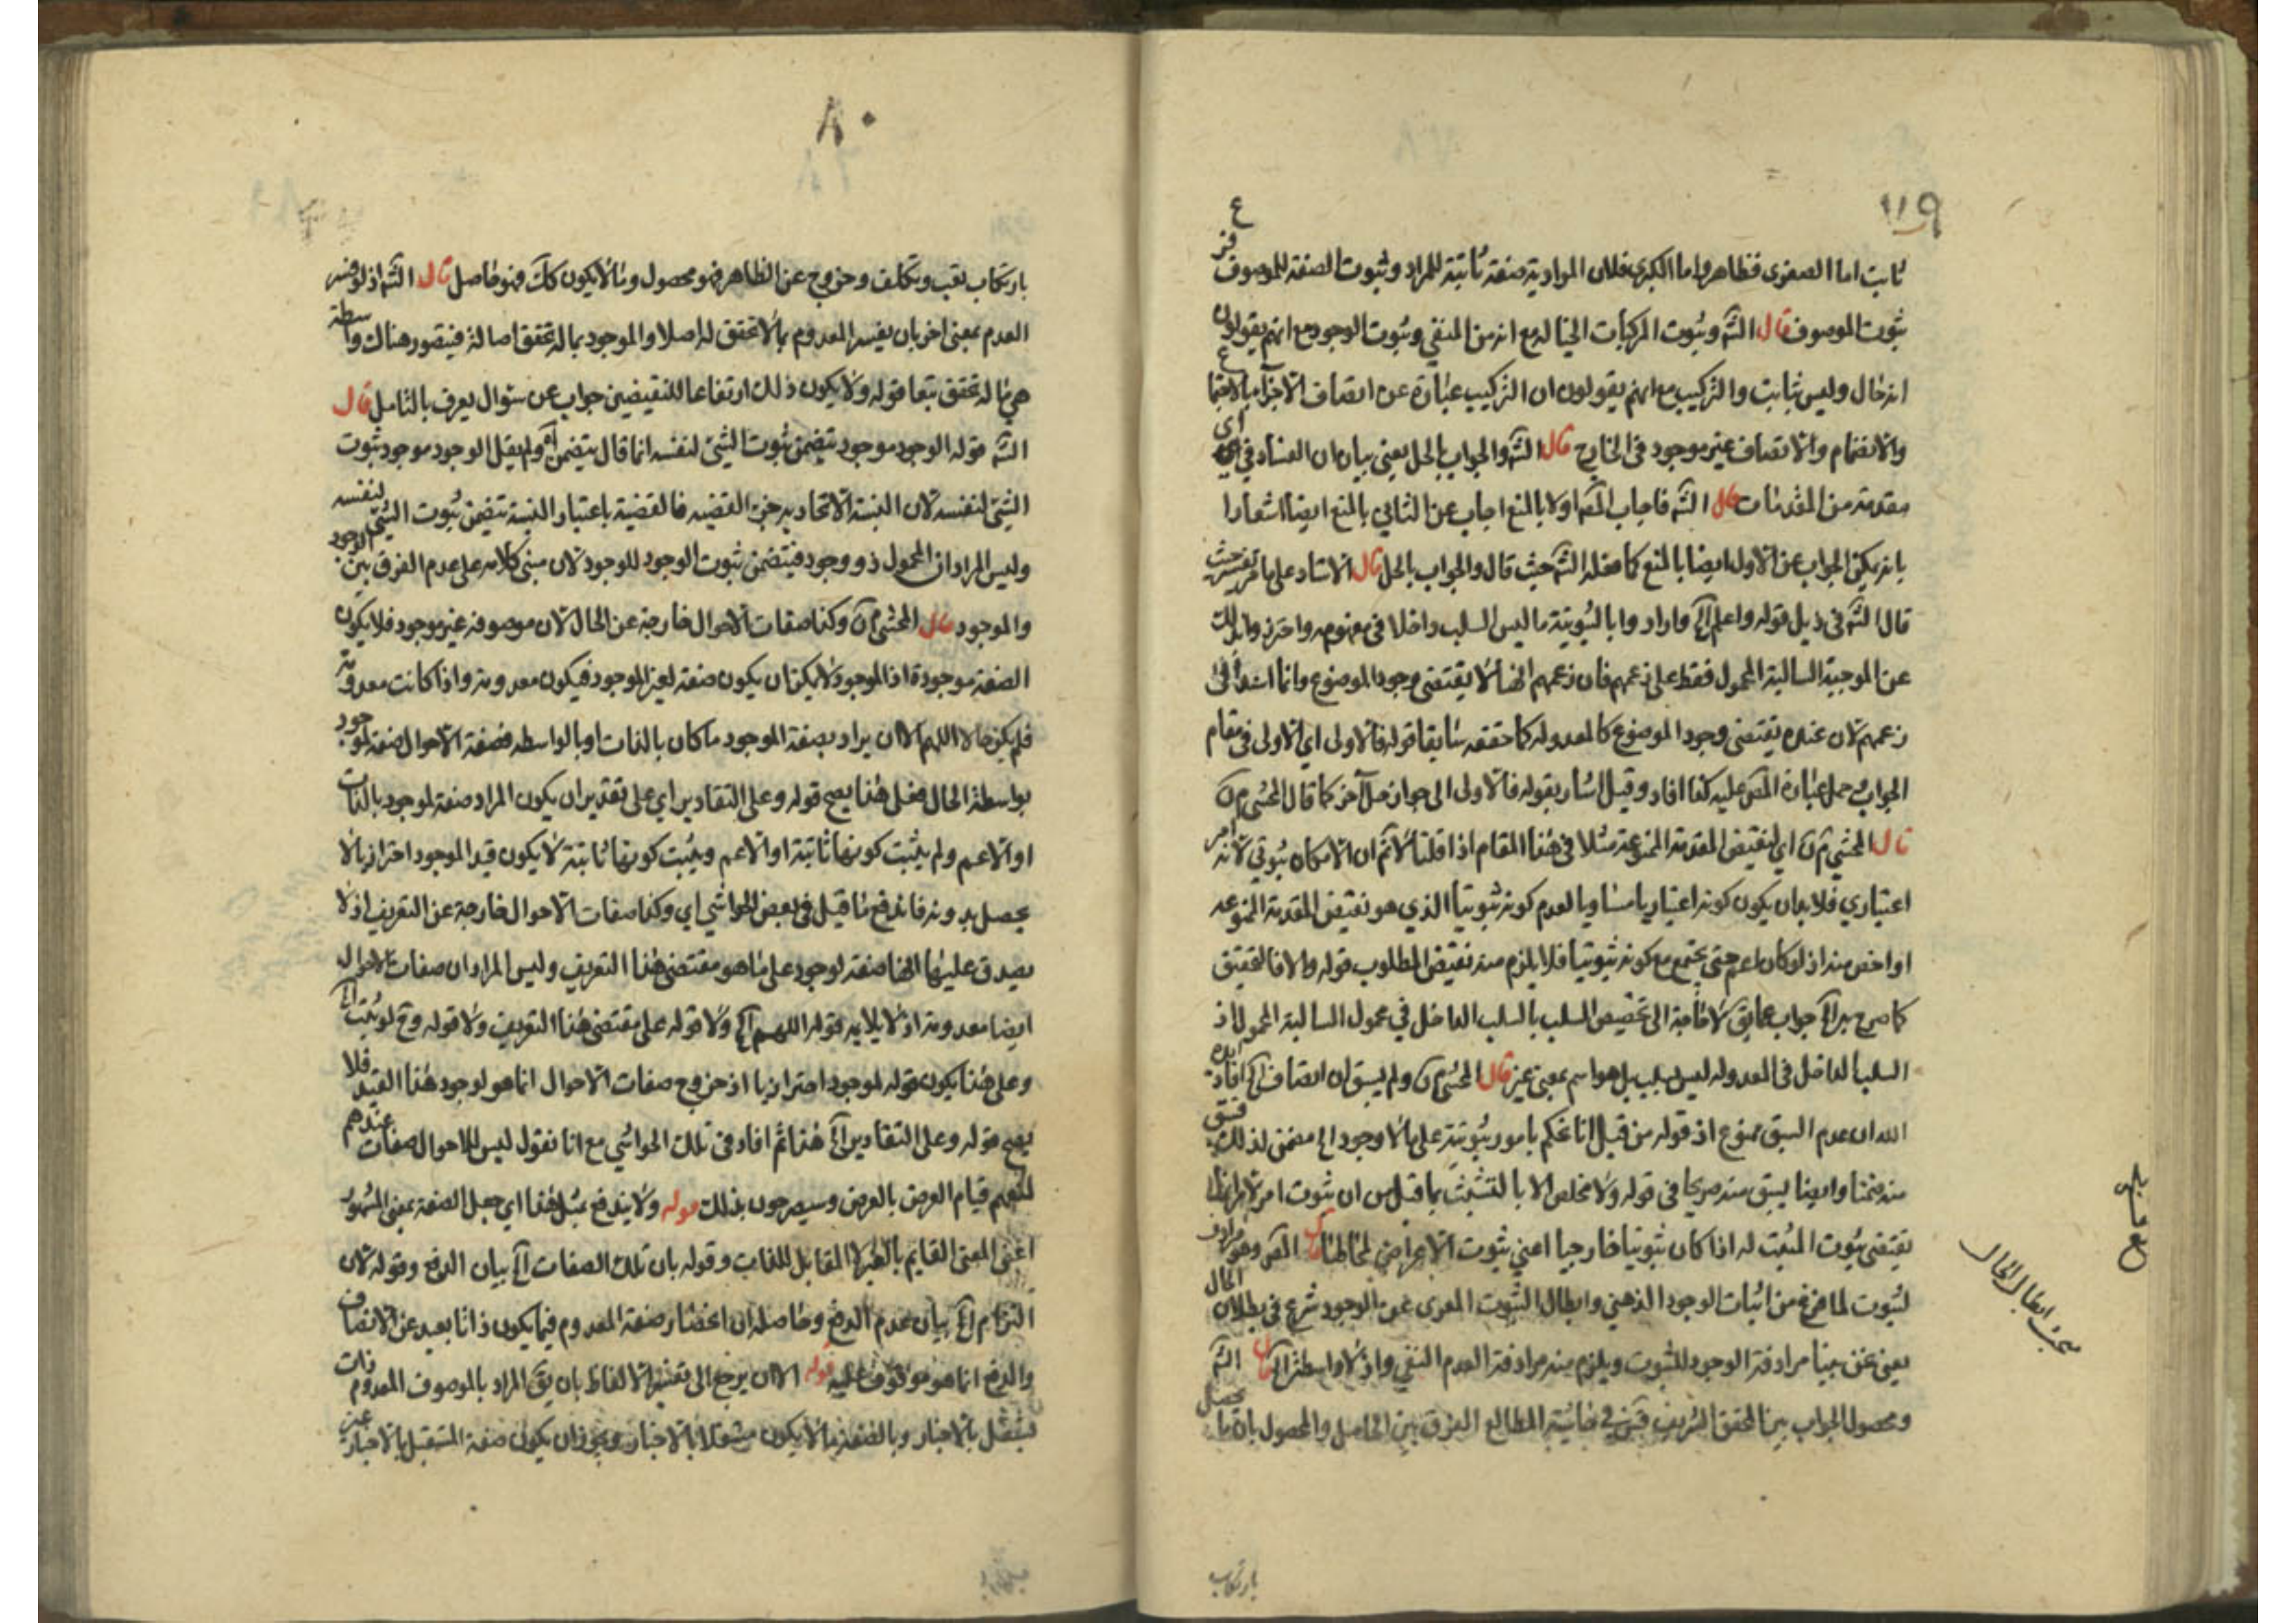 ١١٩
ثابت اما الصغرى فظاهر واما الكبرى فلان المرادية صفة ثابتة للمراد وثبوت الصفة للموصوف فرع
ثبوت الموصوف قال الشه وثبوت المركبات الخيالية مع انه من المنفي وثبوت الوجود مع انهم يقولون
انه حال وليس بثابت والتركيب مع انهم يقولون ان التركيب عبارة عن اتصاف الاجزاء بالاجتماع
والانضمام والاتصاف غير موجود في الخارج قال الشه والجواب بالحل يعني بيان ان الفساد في اي
مقدمة من المقدمات قال الشه فاجاب المصه اولا بالمنع اجاب عن الثاني بالمنع ايضا اشعارا
بانه يمكن الجواب عن الاول ايضا بالمنع كما فعله الشه حيث قال والجواب بالحل قال الاستاد على ما حيث
قال الشه في ذيل قوله واعلم آه واراد وا بالثبوتية ما ليس السلب داخلا في مفهومه واحترزوا بذلك
عن الموجبة السالبة المحمول فقط على زعمهم فان زعمهم انها لا يقتضي وجود الموضوع وانما
زعمهم لان عنده يقتضي وجود الموضوع كالمعدولة كما حققه سابقا قوله فالاولى اي الاولى في مقام
الجواب حمل عبارة المص عليه كذا افاد وقيل اشار بقوله فالاولى الى جواز حل آخر كما قال المحشي
قال المحشي اي لنقيض المقدمة الممنوعة مثلا في هذا المقام اذا قلنا لا نم ان الامكان ثبوتي لانه امر
اعتباري فلا بد ان يكون كونه اعتباريا مساويا لعدم كونه ثبوتيا الذي هو نقيض المقدمة الممنوعة
او اخص منه اذ لو كان اعم حتى يجتمع مع كونه ثبوتيا فلا يلزم منه نقيض المطلوب قوله والا فالتحقيق
كما صرح به آه جواب عما يق لا حاجة الى تخصيص السلب بالسلب الداخل في محمول السالبة المحمول اذ
السلب الداخل في المعدولة ليس بسلب بل هو اسم بمعنى غير قال المحشي ولم يسبق ان اتصاف آه افاد ايده
الله ان عدم السبق ممنوع اذ قوله من قبل انا نحكم بامور ثبوتية على ما لا وجود له متضمن لذلك فسبق
منه ضمنا وايضا يسبق منه صريحا في قوله ولا مخلص الا بالتشبث بما قيل من ان ثبوت امر لامر انما
يقتضي ثبوت المثبت له اذا كان ثبوتيا خارجيا اعني ثبوت الاعراض لمحالها قال المص وهو يرادف
الثبوت لما فرغ من اثبات الوجود الذهني وابطال الثبوت المعرى عن الوجود شرع في بطلان الحال
يعني عن بينا مرادفة الوجود للثبوت ويلزم منه مرادفة العدم النفي واذ لا واسطة آه قال الشه
ومحصول الجواب بين المحقق الشريف في حاشية المطالع الفرق بين الحاصل والمحصول بان ما يحصل
بارتكاب
بحث ابطال الحال
٨٠
بارتكاب تعب وتكلف وخروج عن الظاهر فهو محصول وما لا يكون كك فهو حاصل قال الشه اذ لو فسر
العدم بمعنى اخر بان يفسر المعدوم بما لا تحقق له اصلا والموجود بما له تحقق اصالة فيتصور هناك واسطة
هي ما له تحقق تبعا قوله ولا يكون ذلك ارتفاعا للنقيضين جواب عن سئوال يعرف بالتامل قال
الشه قوله الوجود موجود يتضمن ثبوت الشئ لنفسه انما قال يتضمن آه ولم يقل الوجود موجود ثبوت
الشئ لنفسه لان النسبة الاتحادية جزء القضيه فالقضية باعتبار النسبة تتضمن ثبوت الشئ لنفسه
وليس المراد ان المحمول ذو وجود فيتضمن ثبوت الوجود للوجود لان مبنى كلامه على عدم الفرق بين الوجود
والموجود قال المحشي وكذا صفات الاحوال خارجة عن الحال لان موصوفه غير موجود فلا يكون
الصفة موجودة اذ الموجود لا يمكن ان يكون صفة لغير الموجود فيكون معدومة واذا كانت معدومة
فلم يكن حالا اللهم الا ان يراد بصفة الموجود ما كان بالذات او بالواسطه فصفة الاحوال صفة لموجود
بواسطة الحال فعلى هذا يصح قوله وعلى التقادير اي على تقدير ان يكون المراد صفة لموجود بالذات
او الاعم ولم يثبت كونها ثابتة او الاعم ويثبت كونها ثابتة لا يكون قيد الموجود احترازيا لا
يحصل بدونه فاندفع ما قيل في بعض الحواشي اي وكذا صفات الاحوال خارجة عن التعريف اذ لا
يصدق عليها انها صفة لوجود على ما هو مقتضى هذا التعريف وليس المراد ان صفات الاحوال
ايضا معدومة اذ لا يلايمه قوله اللهم آه ولا قوله على مقتضى هذا التعريف ولا قوله وح لو ثبت آه
وعلى هذا يكون قوله لموجود احترازيا اذ خروج صفات الاحوال انما هو لوجود هذا القيد فلا
يصح قوله وعلى التقادير آه هذا ثم افاد في تلك الحواشي مع انا نقول ليس للاحوال صفات عندهم
لمنعهم قيام العرض بالعرض وسيصرحون بذلك قوله ولا يندفع بمثل هذا اي جعل الصفة بمعنى المشهور
اعني المعنى القايم بالغير المقابل للذات وقوله بان تلك الصفات آه بيان الدفع وقوله لان
التزام آه بيان عدم الدفع وحاصله ان اختصار صفة المعدوم فيما يكون ذاتا بعيد عن الانصاف
والدفع انما هو موقوف عليه قوله الا ان يرجع الى تفسير الالفاظ بان يق المراد بالموصوف المعدوم ذات
يستقل بالاخبار وبالصفة ما لا يكون مستقلا بالاخبار ويجوز ان يكون صفة المستقل بالاخبار غير